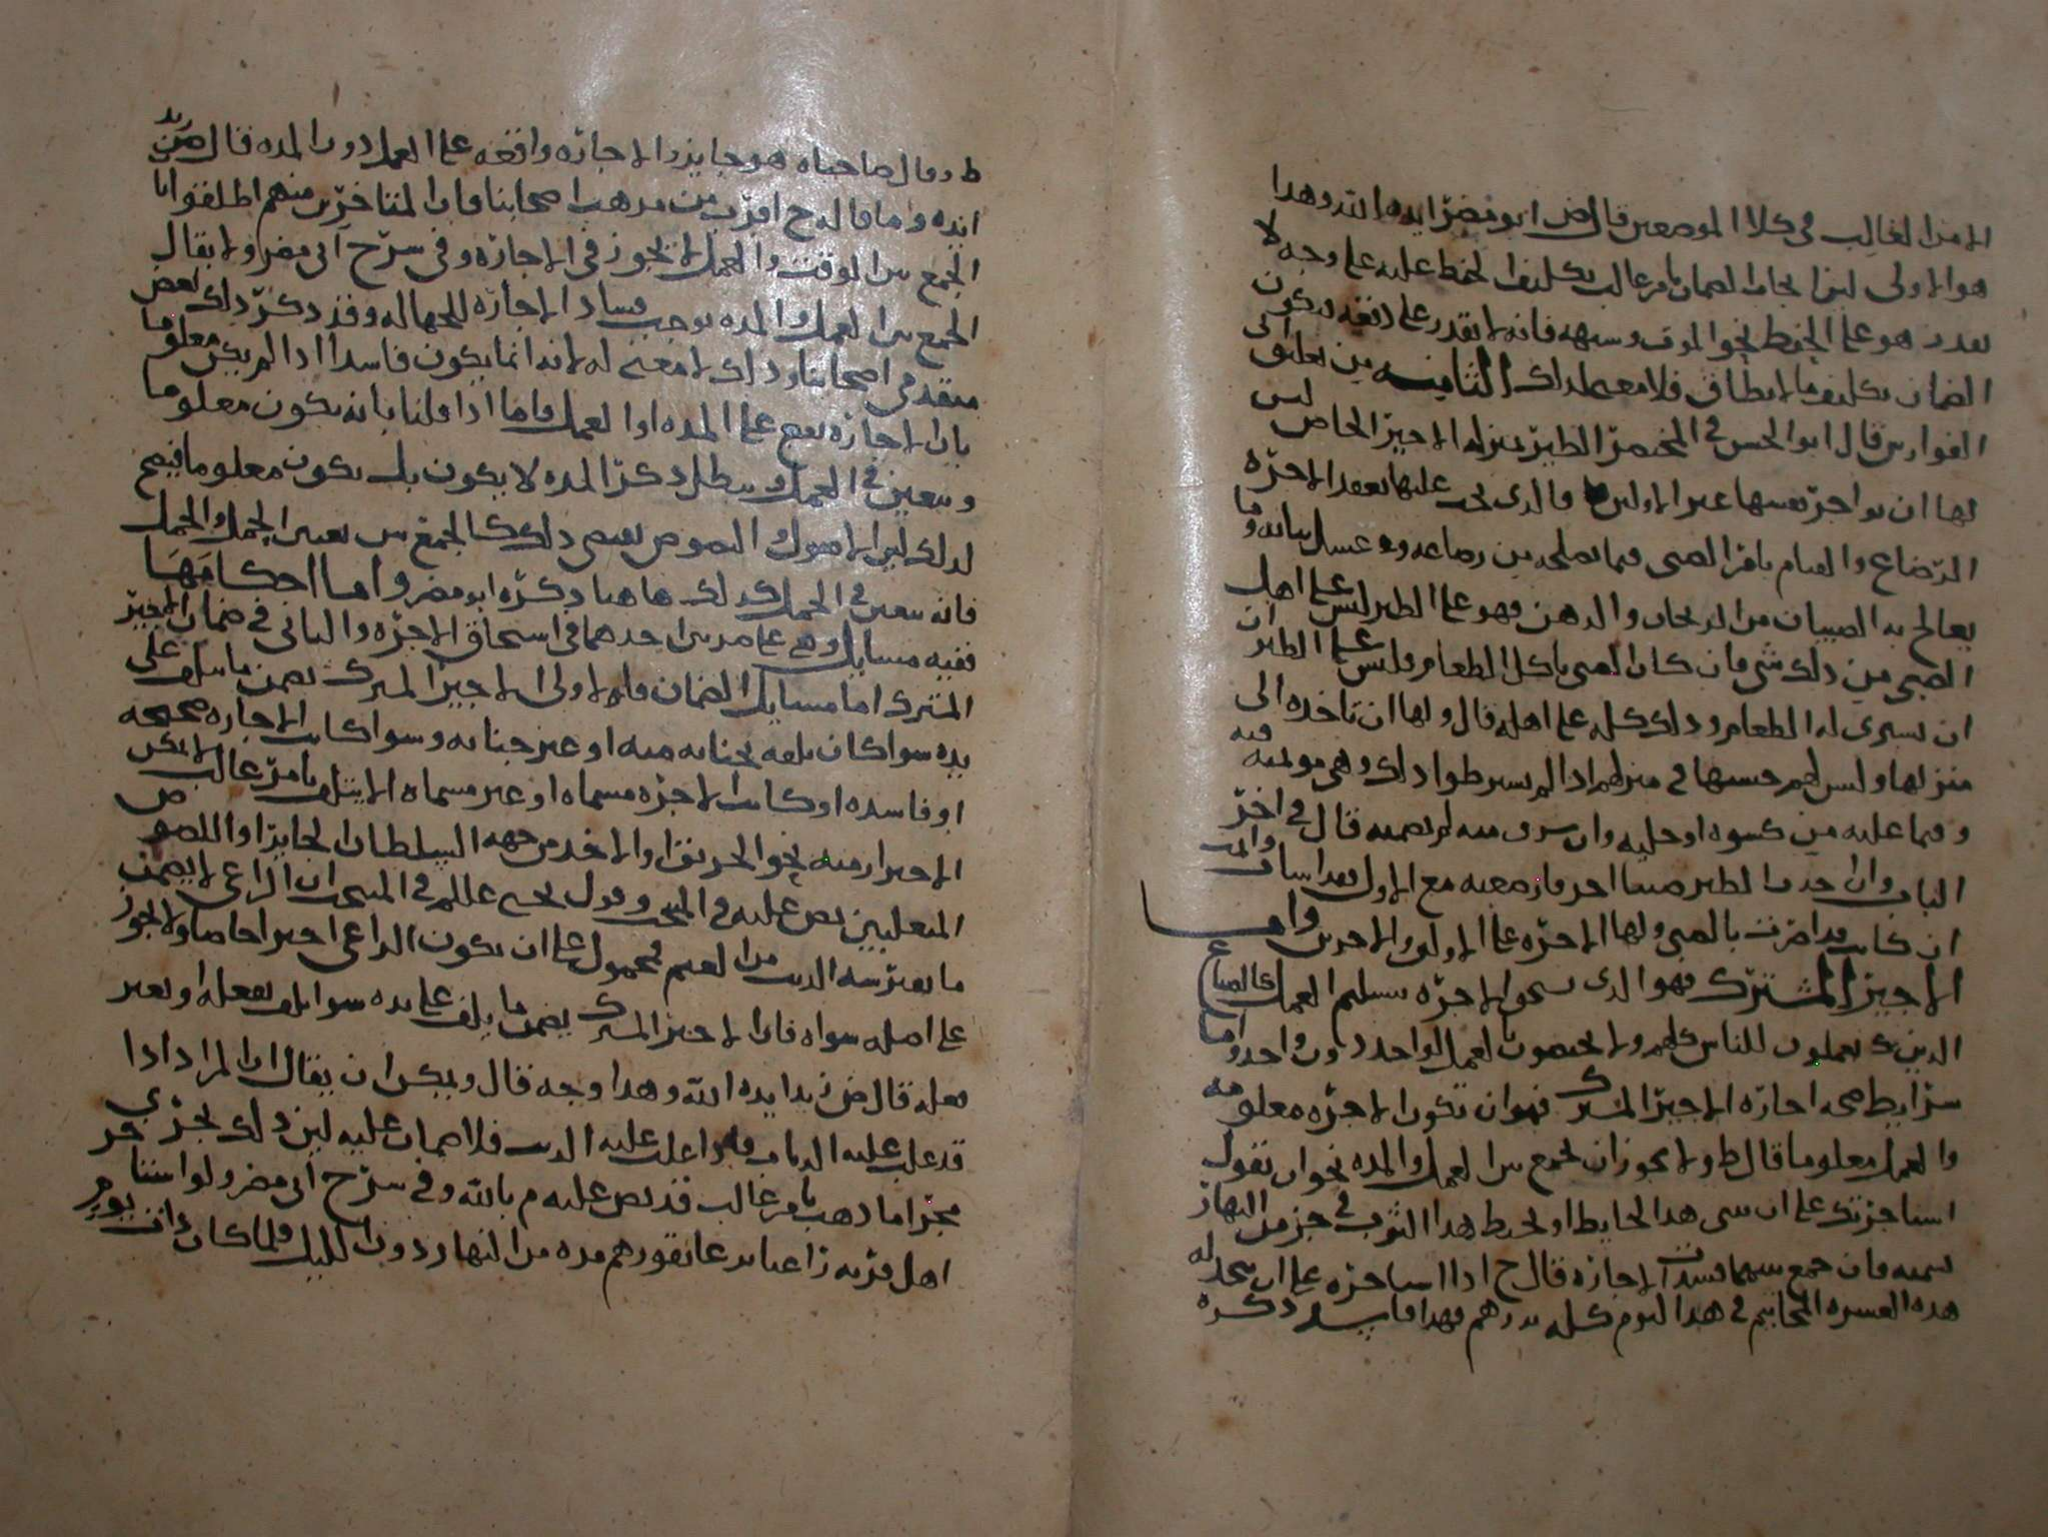 الامرا لغالب في كلا الموضعين قال ض ابو مضر ايده الله وهذا
هو الاولى لان ايجاب الضمان بامر غالب تكليف الحفظ عليه على وجه لا
يقدر هو على الحفظ نحو الموت وشبهه فانه لا يقدر على دفعه فيكون
الضمان تكليف ما لا يطاق فلا معنى لذلك الثامنه من تعليق
قال ابو الحسن في المختصر الظير بمنزله الاجير الخاص ليس
لها ان تواجر نفسها غير الاولين والذي يجب عليها بعقد الاجره
الرضاع والقيام بامر الصبي فيما يصلحه من رضاعه وغسل ثيابه وما
يعالج به الصبيان من الريحان والدهن فهو على الظير ليس على اهل
الصبي من ذلك شي فان كان الصبي ياكل الطعام فليس على الظير ان
تشتري له الطعام وذلك كله على اهله قال ولها ان تاخذه الى
منزلها وليس لهم حبسها في منزلهم اذا لم يشرطوا ذلك وهي موتمنه فيه
وفيما عليه من كسوه او حليه وان سرق منه لم تضمنه قال في اخر
الباب وان اخذت الظير صبيا اخر فارضعته مع الاول فقد اسات واثمت
ان كانت قد اضرت بالصبي ولها الاجره على الاولين والاخرين واما
الاجير المشترك فهو الذي يستحق الاجره بتسليم العمل كالصناع
الذين يعملون للناس كلهم ولا يختصون بالعمل لواحد دون واحد واما
شرايط صحه اجاره الاجير المشترك فهو ان تكون الاجره معلومه
والعمل معلوما قال ط ولا يجوز ان يجمع بين العمل والمده نحو ان تقول
استاجرتك على ان تبني هذا الحايط او تخيط هذا الثوب في جزء من النهار
تسميه فان جمع بينهما فسدت الاجاره قال ح اذا استاجره على ان يخبز له
هذه العشره المخاتيم في هذا اليوم كله بدرهم فهذا فاسد ذكره
ط وقال صاحباه هو جايز والاجاره واقعه على العمل دون المده قال ض زيد
ايده وما قاله ح اقرب من مذهب اصحابنا فان المتاخرين منهم اطلقوا بان
الجمع بين الوقت والعمل لا يجوز في الاجاره وفي شرح ابي مضر ولا يقال
الجمع بين العمل والمده يوجب فساد الاجاره للجهاله وقد ذكر ذلك بعض
متقدمي اصحابنا وذلك لا معنى له لانه انما يكون فاسدا اذا لم يكن معلوما
بان الاجاره تقع على المده او العمل فاما اذا قلنا بانه يكون معلوما
ويتعين في العمل ويبطل ذكر المده لا يكون بل يكون معلوما فيصح
لذلك لان الاصول والنصوص تقتضي ذلك كالجمع بين تعيين الحمل والحمل
فانه يتعين في الحمل كذلك هاهنا ذكره ابو مضر واما احكامها
ففيه مسايل وهي على ضربين احدهما في استحقاق الاجره والثاني في ضمان الاجير
المشترك اما مسايل الضمان فالاولى الاجير المشترك يضمن ما تلف على
يده سوا كان تلفه بجنايه منه او غير جنايه وسوا كانت الاجاره صحيحه
او فاسده او كانت الاجره مسماه او غير مسماه الا يتلف بامر غالب لا يمكن
الاحتراز منه نحو الحريق والاخذ من جهه السلطان الجاير او اللصوص
المتغلبين نص عليه في المنتخب وقول يحيى عللم في المنتخب ان الراعي لا يضمن
ما يفترسه الذيب من الغنم محمول على ان يكون الراعي اجيرا خاصا ولا يجوز
على اصله سواه فان الاجير المشترك يضمن ما يتلف على يده سوا تلف بفعله او بغير
فعله قال ض زيد ايده الله وهذا وجه قال ويمكن ان يقال ان المراد اذا
قد غلب عليه الذياب فاذا غلب عليه الذيب فلا ضمان عليه لان ذلك يجري
مجرا ما ذهب بامر غالب قد نص عليه م بالله وفي شرح ابي مضر ولو استاجر
اهل قريه راعيا يرعا بقورهم مده من النهار دون الليل فلما كان ذات يوم